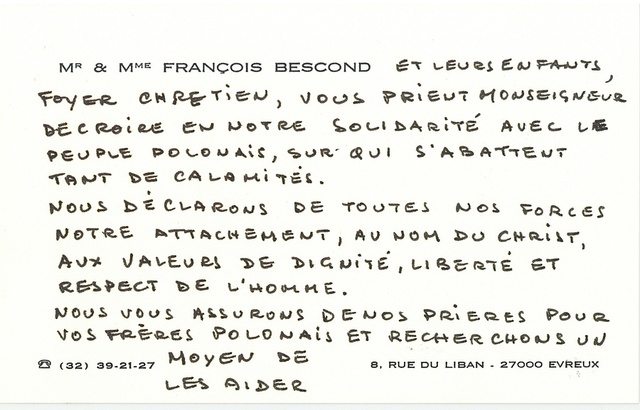 Mr & Mme FRANÇOIS BESCOND ET LEURS ENFANTS,
FOYER CHRETIEN, VOUS PRIENT MONSEIGNEUR
DE CROIRE EN NOTRE SOLIDARITÉ AVEC LE
PEUPLE POLONAIS, SUR QUI S'ABATTENT
TANT DE CALAMITÉS.
NOUS DÉCLARONS DE TOUTES NOS FORCES
NOTRE ATTACHEMENT, AU NOM DU CHRIST,
AUX VALEURS DE DIGNITÉ, LIBERTÉ ET
RESPECT DE L'HOMME.
NOUS VOUS ASSURONS DE NOS PRIERES POUR
VOS FRÈRES POLONAIS ET RECHERCHONS UN
MOYEN DE
☎ (32) 39-21-27 8, RUE DU LIBAN - 27000 EVREUX
LES AIDER